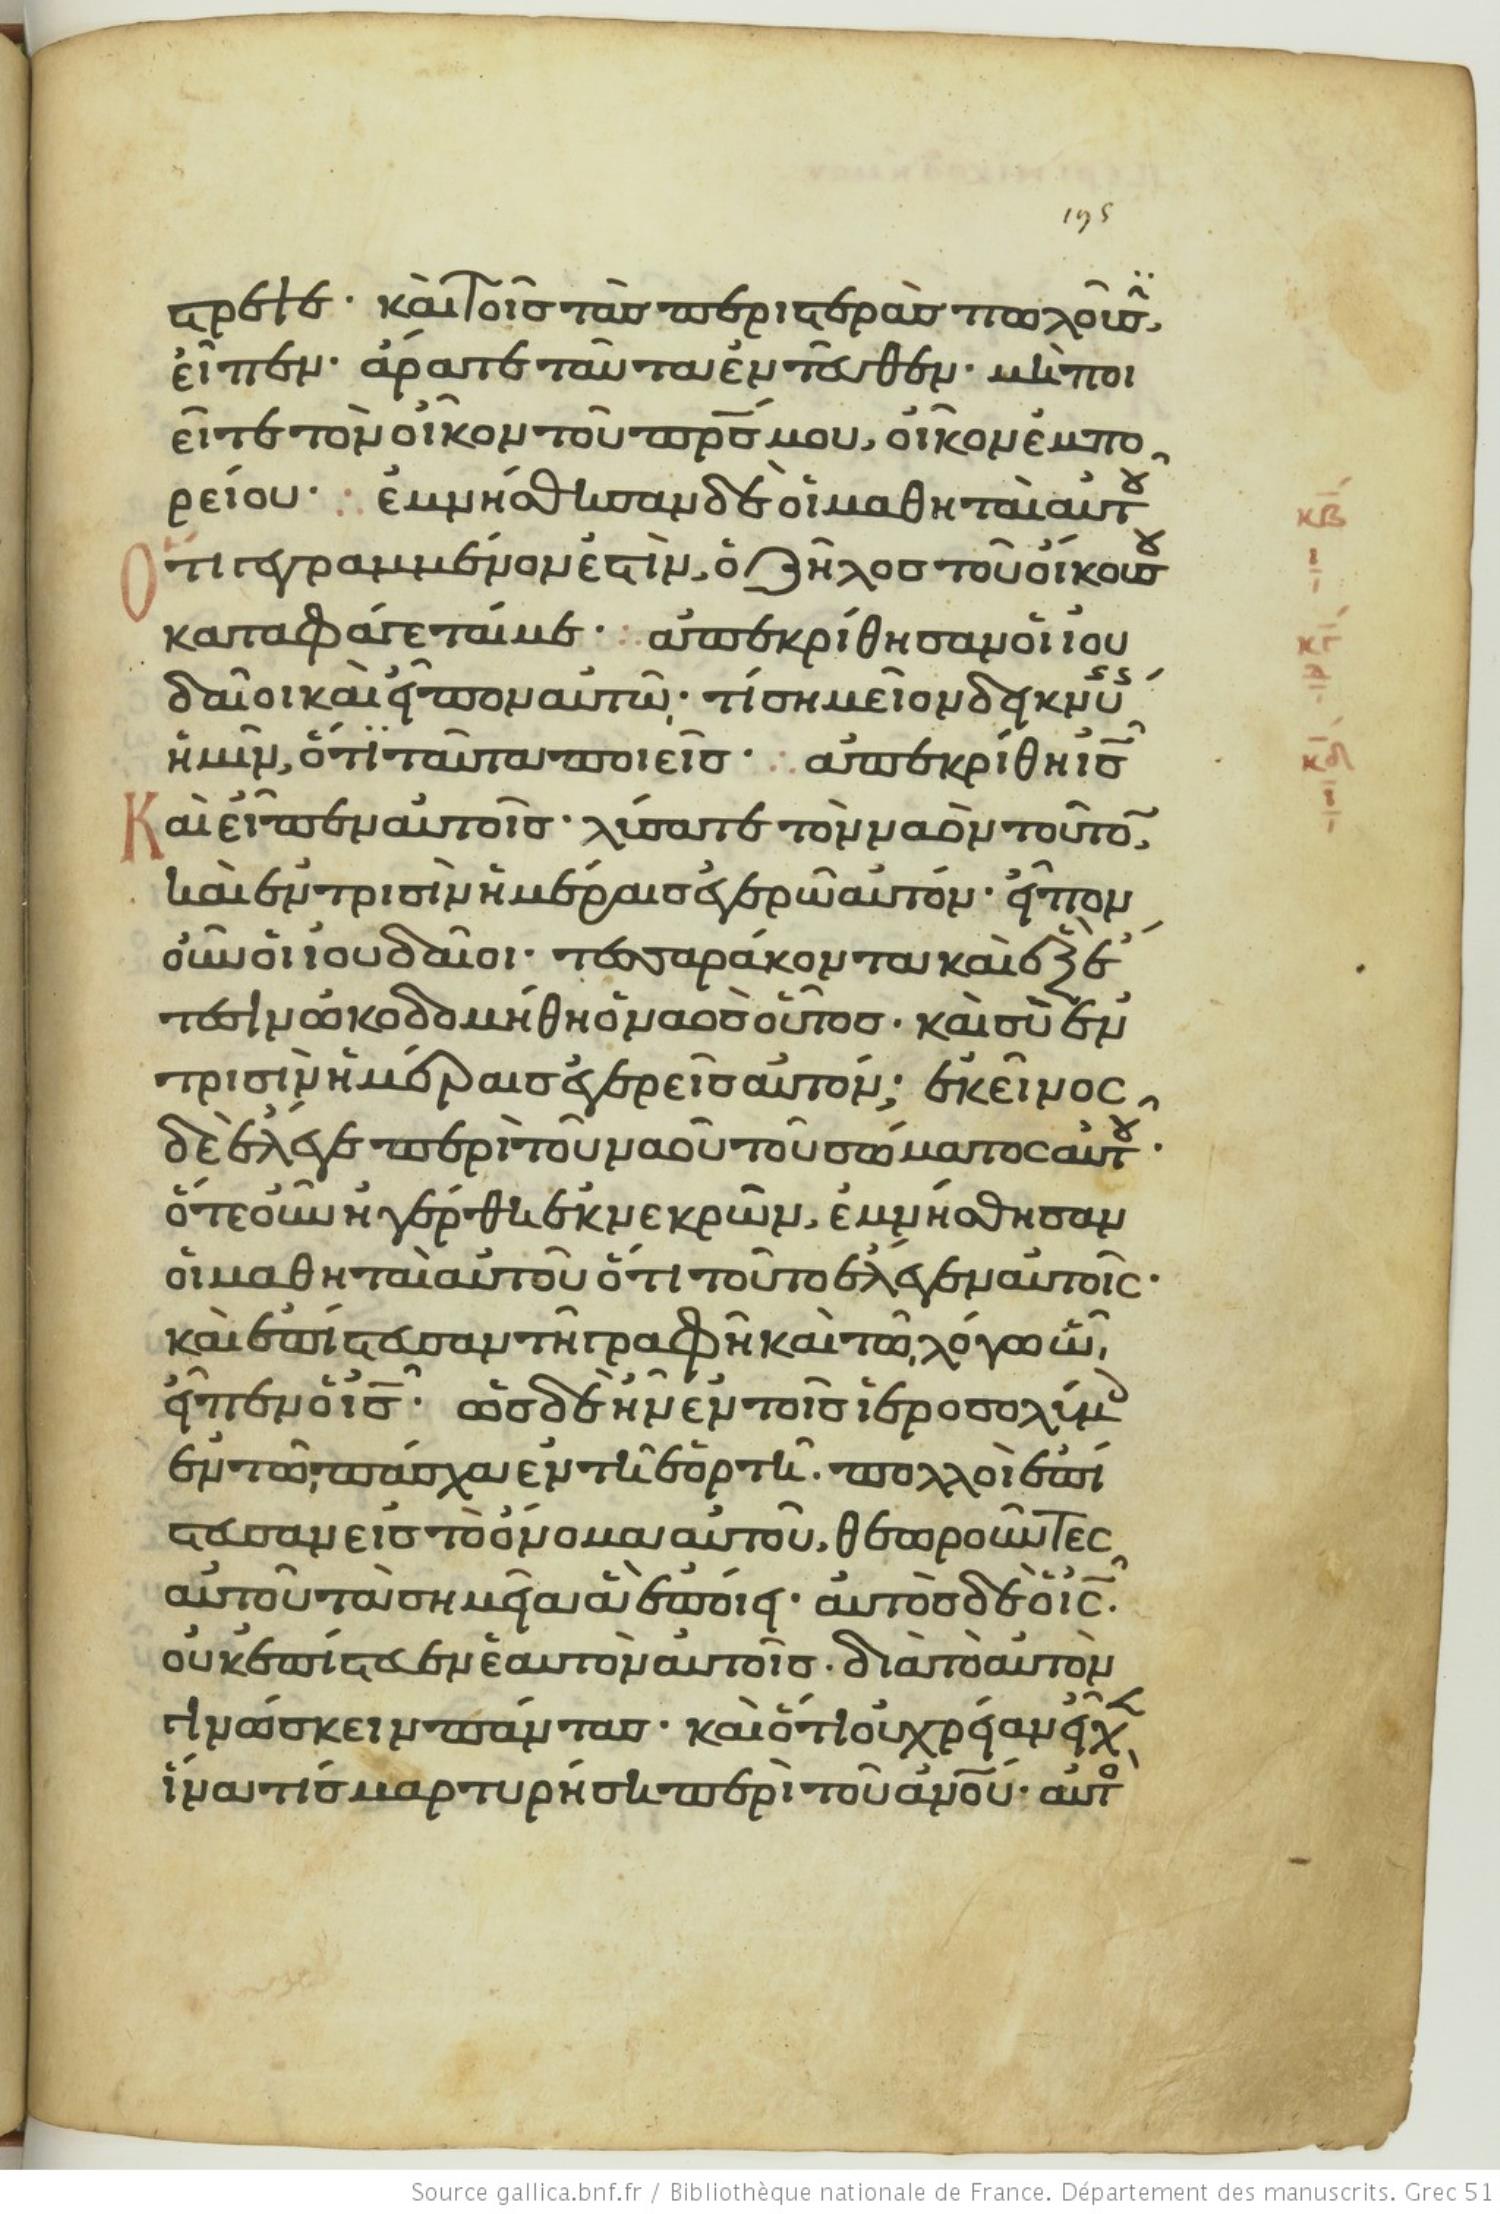 195
στρεψε· καὶ τοῖς τὰς περιστερὰς πωλοῦσϊ,
εἶπεν· ἄρατε ταῦτα ἐντεῦθεν· μὴ ποι
εῖτε τὸν οἶκον του πρσ̅ μου, οἶκον ἐμπο
ρείου· ἐμνήσθησαν δὲ οἱ μαθηταὶ αὐτοῦ
Ὅτι γεγραμμένον ἐστὶν, ὁ ζῆλος τοῦ οἴκου σου
καταφάγεταί με· ἀπεκρίθησαν οἱ ἰου
δαῖοι καὶ εἶπον αὐτῶ· τί σημεῖον δεικνύεις
ἡμῖν, ὅτι ταῦτα ποιεῖς· ἀπεκρίθη ισ̅
Καὶ εἶπεν αὐτοῖς· λύσατε τὸν ναὸν τοῦτο̅,
καὶ ἐν τρισὶν ἡμέραις ἐγερῶ αὐτόν· εἶπον
οὖν οἱ ἰουδαῖοι· τεσσαράκοντα καὶ ἓξ ἔ
τεσιν ὠκοδομήθη ὁ ναὸς οὗτος· καὶ σὺ ἐν
τρισὶν ἡμέραις ἐγερεῖς αὐτόν; ἐκεῖνος
δὲ ἔλεγε περὶ τοῦ ναοῦ τοῦ σώματος αὐτοῦ·
ὅτε οὖν ἠγέρθη ἐκ νεκρῶν, ἐμνήσθησαν
οἱ μαθηταὶ αὐτοῦ ὅτι τοῦτο ἔλεγεν αὐτοῖς·
καὶ ἐπίστευσαν τῆ γραφῆ καὶ τῶ λόγω ὧ
εἶπεν ὁ ισ̅· ὡς δὲ ἦν ἐν τοῖς ἱεροσολύμοις
ἐν τῶ πάσχα ἐν τῆ ἑορτῆ· πολλοὶ ἐπί
στευσαν εἰς τὸ ὄνομα αὐτοῦ, θεωροῦντες
αὐτοῦ τὰ σημεῖα ἃ ἐποίει· αὐτὸς δὲ ὁ ισ̅·
οὐκ ἐπίστευεν ἑαυτὸν αὐτοῖς· διὰ τὸ αὐτὸν
γινώσκειν πάντας· καὶ ὅτι οὐ χρείαν εἶχεν
ἵνα τίς μαρτυρήση περὶ τοῦ ἀνου̅· αὐτὸς
κβ
ι
κγ
κδ
ι
Source gallica.bnf.fr / Bibliothèque nationale de France. Département des manuscrits. Grec 51